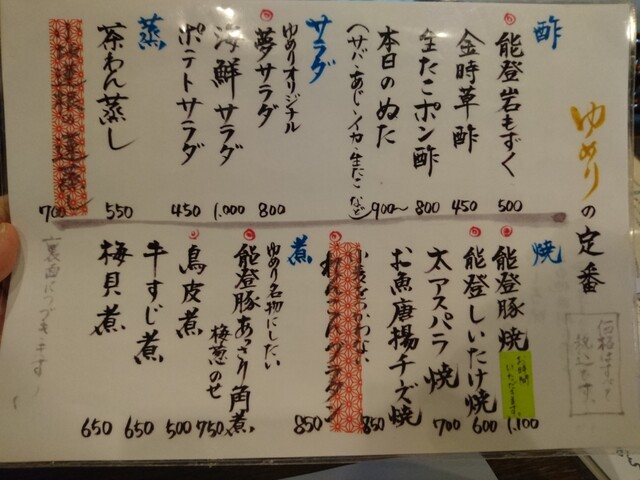 ゆめりの定番
価格はすべて
税込です。
酢
能登岩もずく 500
金時草酢 450
生たこポン酢 800
本日のぬた 900〜
(サバ・あじ・イカ・生たこなど)
サラダ
ゆめりオリジナル
夢サラダ 800
海鮮サラダ 1.000
ポテトサラダ 450
蒸
茶わん蒸し 550
小坂蓮根の蓮蒸し 700
焼
能登豚焼 1.100
お時間
いただきます。
能登しいたけ焼 600
太アスパラ焼 700
お魚唐揚チーズ焼 850
小麦をつかわない
れんこんグラタン 850
煮
ゆめり名物にしたい
能登豚あっさり角煮 750
梅葱のせ
鳥皮煮 500
牛すじ煮 650
梅貝煮 650
裏面につづきます